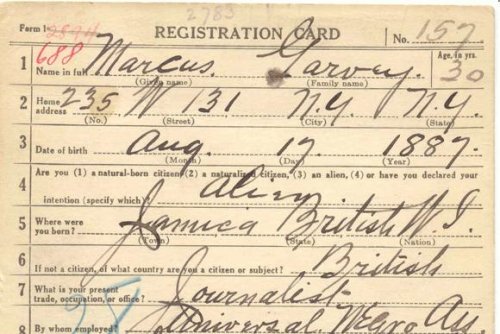 2783
Form 1 2894 REGISTRATION CARD No. 157
688
1 Name in full Marcus Garvey Age, in yrs. 30
(Given name) (Family name)
2 Home address 235 W 131 N.Y. N.Y.
(No.) (Street) (City) (State)
3 Date of birth Aug. 17 1887
(Month) (Day) (Year)
4 Are you (1) a natural-born citizen, (2) a naturalized citizen, (3) an alien, (4) or have you declared your
intention (specify which)? Alien
5 Where were you born? Jamaica British W.I.
(Town) (State) (Nation)
6 If not a citizen, of what country are you a citizen or subject? British
7 What is your present trade, occupation, or office? Journalist
8 By whom employed? Universal Negro